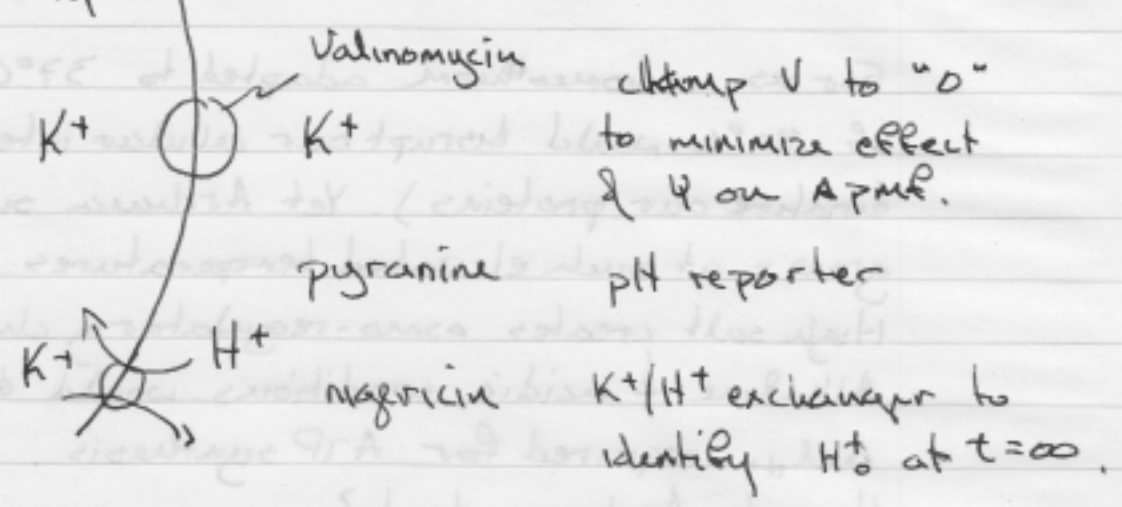 Valinomycin
clamp V to "0"
K+ K+ to minimize effect
of Ψ on Δpmf.
pyranine pH reporter
K+ H+
nigericin K+/H+ exchanger to
identify H+o at t=∞.